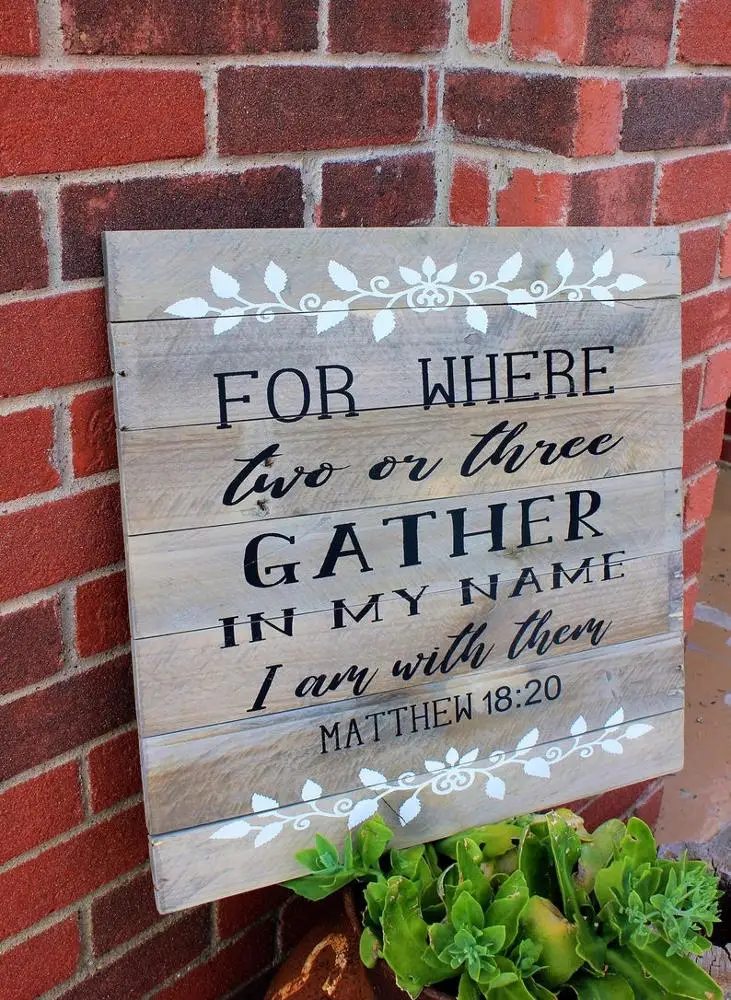 FOR WHERE
two or three
GATHER
IN MY NAME
I am with them
MATTHEW 18:20